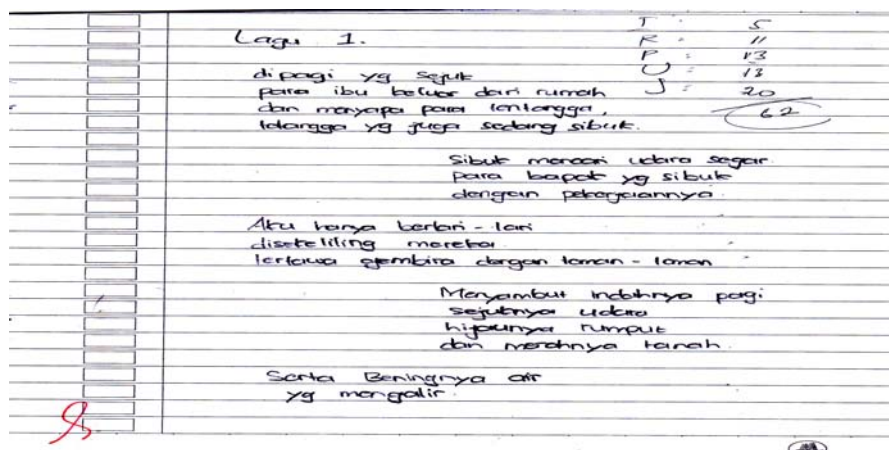 Lagu 1.
T : 5
R : 11
P : 13
U : 13
J : 20
62
dipagi yg sejuk
para ibu keluar dari rumah
dan menyapa para tentangga,
tetangga yg juga sedang sibuk.
Sibuk mencari udara segar
para bapak yg sibuk
dengan pekerjaannya.
Aku hanya berlari-lari
disekeliling mereka
tertawa gembira dengan teman-teman
Menyambut indahnya pagi
sejuknya udara
hijaunya rumput
dan merahnya tanah.
Serta Beningnya air
yg mengalir.